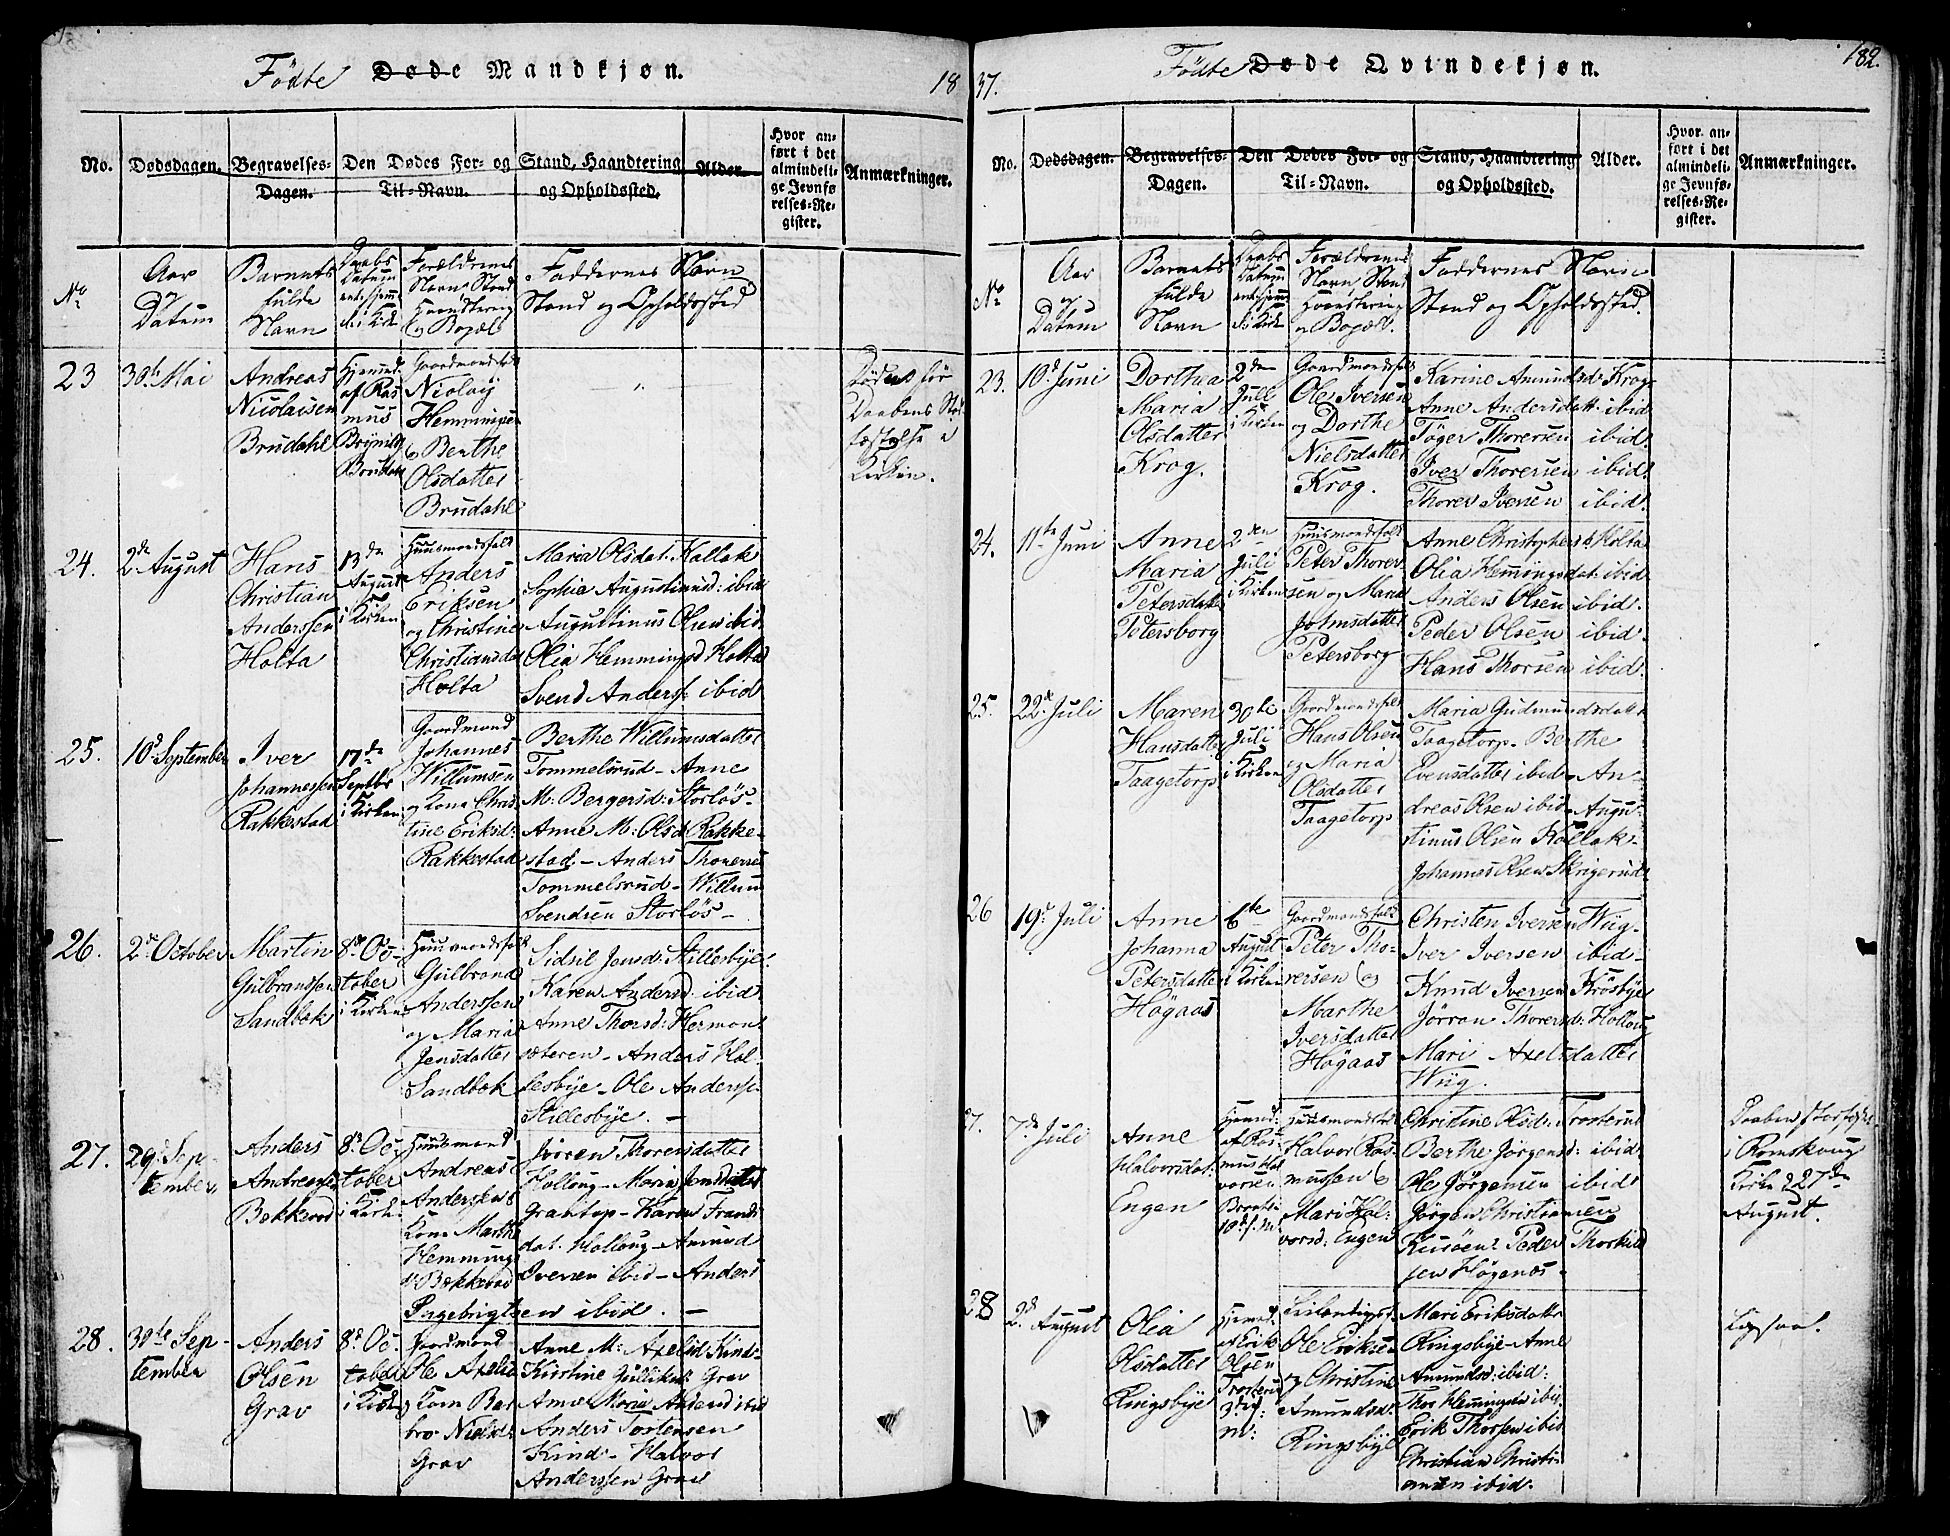 Födte Døde Mandkjøn.
18
No.
Dødsdagen.
Begravelses-
Dagen.
Den Dødes For- og
Til-Navn.
Stand, Haandtering
og Opholdssted.
Alder.
Hvor an-
ført i det
almindeli-
ge Jevnfø
relses-Re-
gister.
Anmærkninger.
No
Aar
og
Datum
Barnets
fulde
Navn
Daabs
Datum
Forældrenes
Navn, Stand
Haandtering
og Bopæl
Faddernes Navn
Stand og Opholdssted
23
30th Mai
Andreas
Nicolaisen
Brudahl
Hjemmed
af Ras
mus
Brudahl
Gaardmandsfolk
Nicolay
Hemmingsen
og Berthe
Olsdatter
Brudahl
Døde før
Daabens Stad
fæstelse i
Kirken.
24.
2de August
Hans
Christian
Anderssen
Holta
13de
August
i Kirken
Huusmandsfolk
Anders
Eriksen
og Christine
Christiansdat
Holta
Maria Olsdat. Kallak
Sophia Augustinusd: ibid
Augustinus Olsen ibid
Olia Hemmingsd Holta
Svend Anderss: ibid
25.
10d September
Iver
Johannessen
Rakkestad
17de
Septbr
i Kirken
Gaardmand
Johannes
Willumsen
og Kone Chris
tine Eriksd:
Rakkestad
Berthe Willumsdatter
Tommelsrud - Anne
M: Bergersd: Storløs-
Anne M: Olsd Rakke-
stad - Anders Thoressen
Tommelsrud - Willum
Svendsen Storløs -
26.
2de October
Martin
Gulbranssen
Sandbæk
8de Oc-
tober
i Kirken
Huusmandsfolk
Gulbrand
Anderssen
og Maria
Jensdatter
Sandbæk
Sidsil Jonsd: Stillesbye
Karen Andersd: ibid
Anne Thorsd: Herman
sæteren - Anders Hal
lesbye - Ole Anderss-
Stillesbye. -
27.
29d Sep-
tember
Anders
Andreassen
Bækkevad
8de Oc-
tober
i Kirk:
Huusmand
Andreas
Anderssen
Kone Marthe
Hemmings
d: Bækkevad
Jøren Thoresdatter
Holloug - Maria Jensdatter
Graatop - Karen Frands
dat. Holloug - Amund
Iversen ibid - Anders
Ingebrigtsen ibid. -
28.
30te Sep-
tember
Anders
Olsen
Grav
8de Oc-
tober
i Kirk
Gaardmand
Ole Axelsen
og Kone Bar
bro Nielsd
Grav
Anne M: Axelsd: Kind-
Kirstine Gulliksd Grav
Anne Maria Andersd ibid
Anders Torstensen
Kind - Halvor
Anderssen Grav
37.
Födte Døde Qvindekjøn.
182.
No.
Dødsdagen.
Begravelses-
Dagen.
Den Dødes For- og
Til-Navn.
Stand, Haandtering
og Opholdssted.
Alder.
Hvor an-
ført i det
almindeli-
ge Jevnfø-
relses-Re-
gister.
Anmærkninger.
No
Aar
og
Datum
Barnets
fulde
Navn
Daabs
Datum
Forældrenes
Navn, Stand
Haandtering
og Bopæl.
Faddernes Navn
Stand og Opholdssted.
23.
10d Juni
Dorthea
Maria
Olsdatter
Krog.
2den
Juli
i Kirken
Gaardmandsfolk
Ole Iversen
og Dorthe
Nielsdatter
Krog.
Karine Amundsd: Krog
Anne Andersdatt: ibid
Töger Thorersen ibid:
Iver Thorersen ibid:
Thorer Iversen ibid:
24.
11te Juni
Anne
Maria
Petersdatter
Petersborg
2den
Juli
i Kirken
Huusmandsfolk
Peter Thorer
sen og Maria
Johnsdatter
Petersborg
Anne Christophersd: Holta
Olia Hemmingsdat: ibid
Anders Olsen ibid.
Peder Olsen ibid.
Hans Thorsen ibid.
25.
22de Juli
Maren
Hansdatter
Taagetorp
30te
Juli
i Kirken
Gaardmandsfolk
Hans Olsen
og Maria
Olsdatter
Taagetorp
Maria Gudmundsdatter
Taagetorp - Berthe
Evensdatter ibid - An-
dreas Olsen ibid - Augu-
stinus Olsen Kallak -
Johannes Olsen Skrigerud:
26
19de Juli
Anne
Johanna
Petersdatter
Högaas
6te
August
i Kirken
Gaardmandsfolk
Peter Tho-
rersen og
Marthe
Iversdatter
Högaas
Christen Iversen Wiig-
Iver Iversen ibid-
Knud Iversen Krösbye
Jörran Thorersd: Holloug
Mari Axelsdatter
Wiig.
7.
7de Juli
Anne
Halvorsdat:
Engen
Hjemmed:
af Ras-
mus Hal
vorsen
Huusmandsfolk
Halvor Ras
mussen og
Mari Hal-
vorsd: Engen
Christine Olsd: Trosterud
Berthe Jörgensd: ibid:
Ole Jörgensen ibid:
Jörgen Christiansen
Peder Thorkild
sen Högenæs -
Daaben stadfæstet
i Romskoug
Kirke d 27de
August.
28
2de August
Olia
Olsdatter
Ringsbye
Hjemmed.
af Erik
Olsen
Trosterud
Ole Eriksen
og Christine
Amundsd:
Ringsbye
Mari Eriksdatter
Ringsbye - Anne
Amundsd: ibid:
Thor Hemmingsen ibid.
Erik Thorsen ibid
Christian Christi-
ansen ibid.